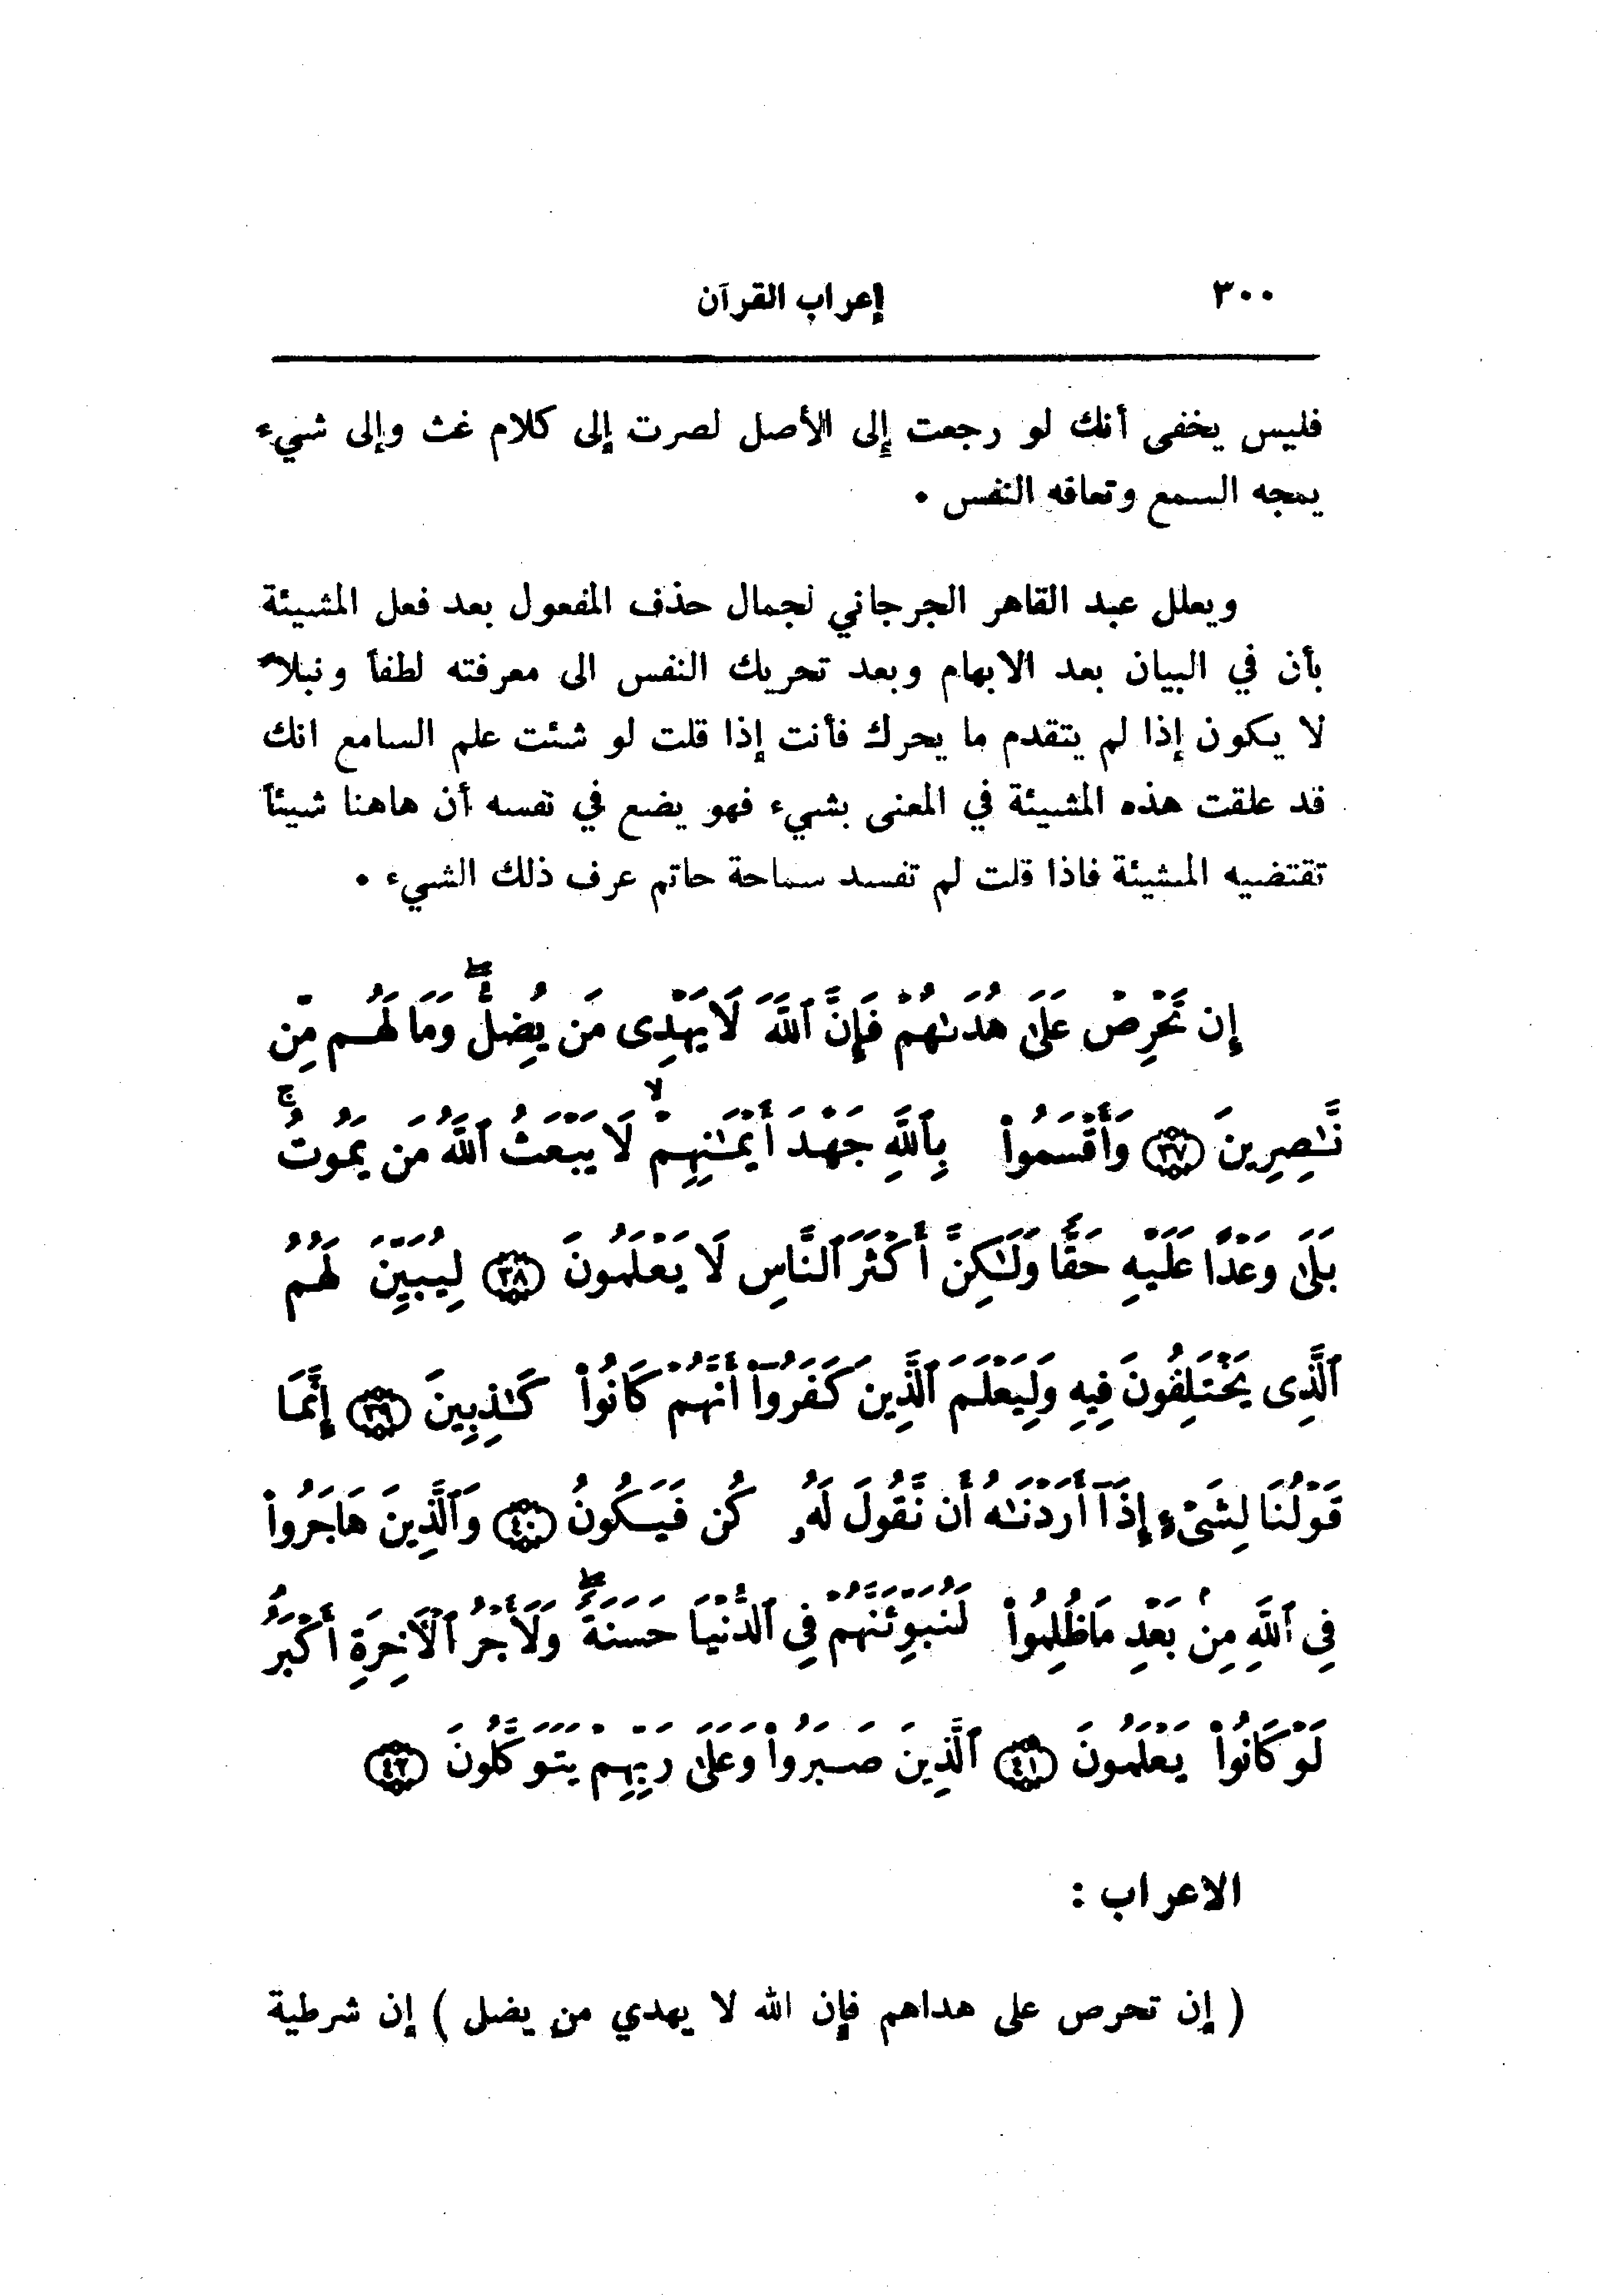 ٣٠٠
إعراب القرآن
فليس يخفى أنك لو رجعت إلى الأصل لصرت إلى كلام غث وإلى شيء
يمجه السمع وتعافه النفس .
ويعلل عبد القاهر الجرجاني لجمال حذف المفعول بعد فعل المشيئة
بأن في البيان بعد الابهام وبعد تحريك النفس الى معرفته لطفاً ونبلاً
لا يكون إذا لم يتقدم ما يحرك فأنت إذا قلت لو شئت علم السامع انك
قد علقت هذه المشيئة في المعنى بشيء فهو يضع في نفسه أن هاهنا شيئاً
تقتضيه المشيئة فاذا قلت لم تفسد سماحة حاتم عرف ذلك الشيء .
إِن تَحْرِصْ عَلَىٰ هُدَىٰهُمْ فَإِنَّ ٱللَّهَ لَا يَهْدِى مَن يُضِلُّ ۖ وَمَا لَهُم مِّن
نَّٰصِرِينَ ﴿٣٧﴾ وَأَقْسَمُوا۟ بِٱللَّهِ جَهْدَ أَيْمَٰنِهِمْ ۙ لَا يَبْعَثُ ٱللَّهُ مَن يَمُوتُ ۚ
بَلَىٰ وَعْدًا عَلَيْهِ حَقًّا وَلَٰكِنَّ أَكْثَرَ ٱلنَّاسِ لَا يَعْلَمُونَ ﴿٣٨﴾ لِيُبَيِّنَ لَهُمُ
ٱلَّذِى يَخْتَلِفُونَ فِيهِ وَلِيَعْلَمَ ٱلَّذِينَ كَفَرُوٓا۟ أَنَّهُمْ كَانُوا۟ كَٰذِبِينَ ﴿٣٩﴾ إِنَّمَا
قَوْلُنَا لِشَىْءٍ إِذَآ أَرَدْنَٰهُ أَن نَّقُولَ لَهُۥ كُن فَيَكُونُ ﴿٤٠﴾ وَٱلَّذِينَ هَاجَرُوا۟
فِى ٱللَّهِ مِنۢ بَعْدِ مَا ظُلِمُوا۟ لَنُبَوِّئَنَّهُمْ فِى ٱلدُّنْيَا حَسَنَةً ۖ وَلَأَجْرُ ٱلْءَاخِرَةِ أَكْبَرُ ۚ
لَوْ كَانُوا۟ يَعْلَمُونَ ﴿٤١﴾ ٱلَّذِينَ صَبَرُوا۟ وَعَلَىٰ رَبِّهِمْ يَتَوَكَّلُونَ ﴿٤٢﴾
الاعراب :
( إن تحرص على هداهم فإن الله لا يهدي من يضل ) إن شرطية